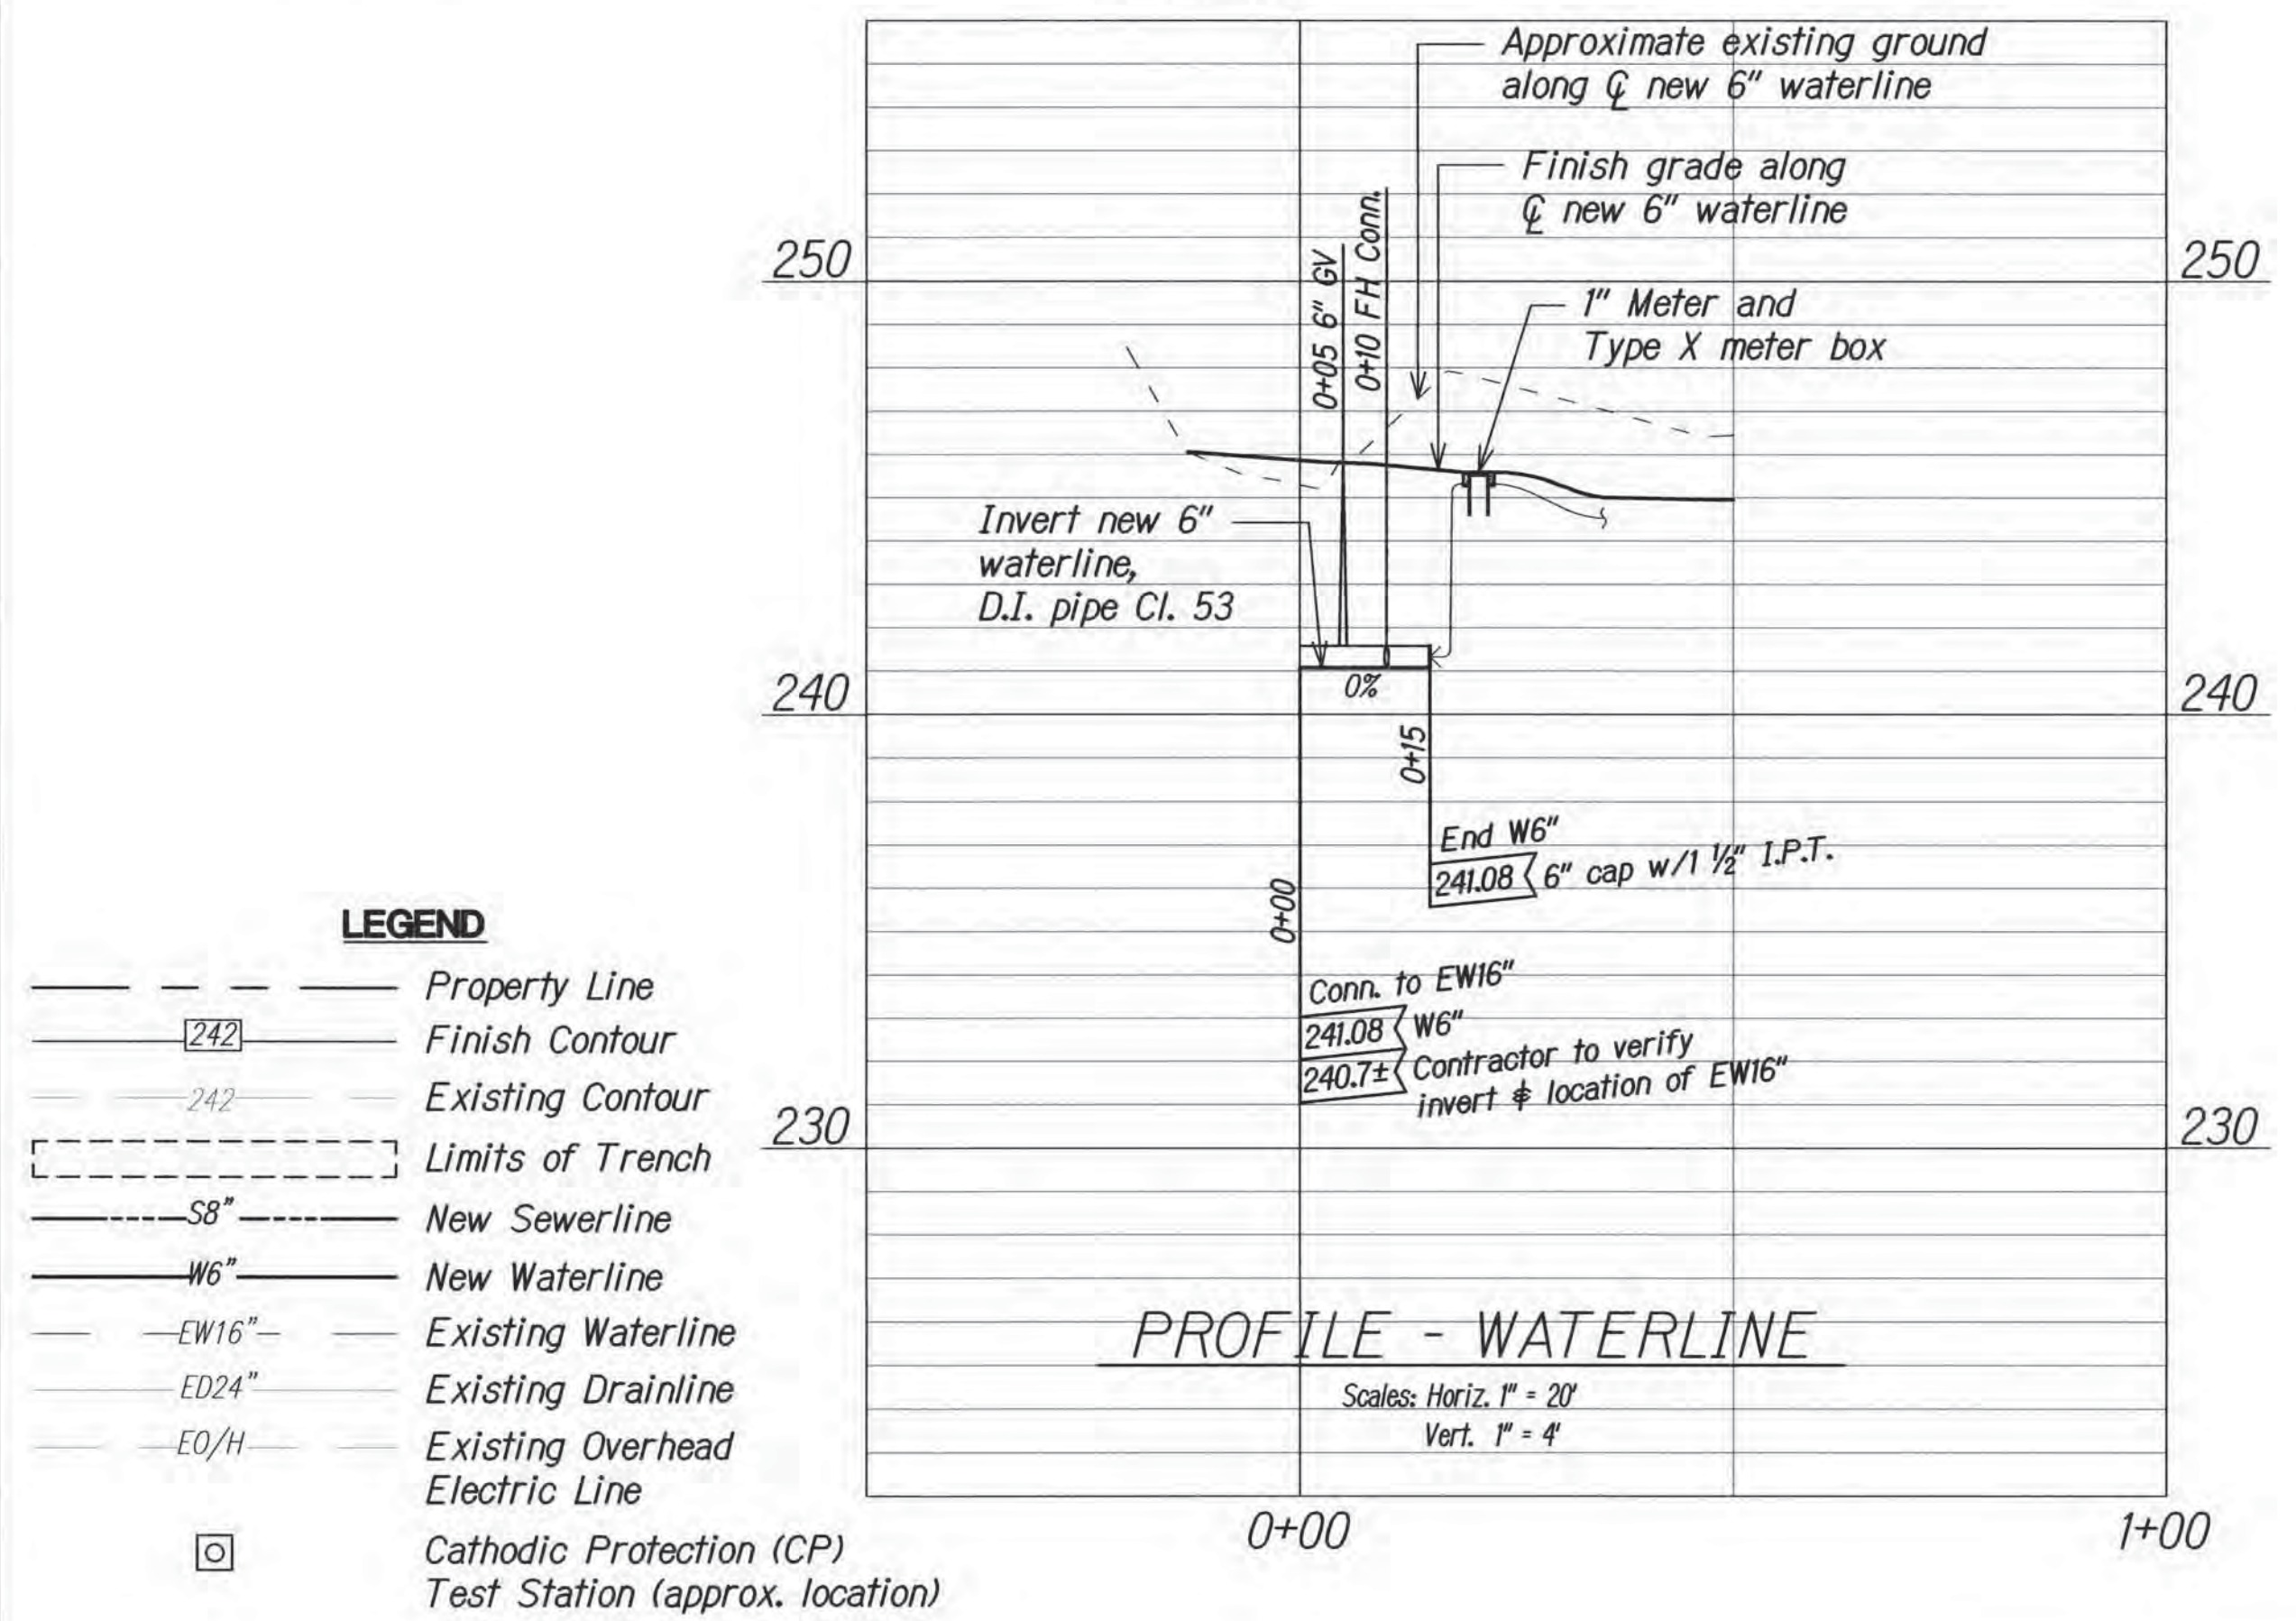 Approximate existing ground
along ℄ new 6" waterline
Finish grade along
℄ new 6" waterline
250
250
0+05 6" GV
0+10 FH Conn.
1" Meter and
Type X meter box
Invert new 6"
waterline,
D.I. pipe Cl. 53
240
240
0%
0+15
End W6"
241.08 6" cap w/1 ½" I.P.T.
0+00
Conn. to EW16"
241.08 W6"
240.7± Contractor to verify
invert & location of EW16"
230
230
PROFILE - WATERLINE
Scales: Horiz. 1" = 20'
Vert. 1" = 4'
0+00
1+00
LEGEND
Property Line
242 Finish Contour
242 Existing Contour
Limits of Trench
S8" New Sewerline
W6" New Waterline
EW16" Existing Waterline
ED24" Existing Drainline
EO/H Existing Overhead
Electric Line
Cathodic Protection (CP)
Test Station (approx. location)